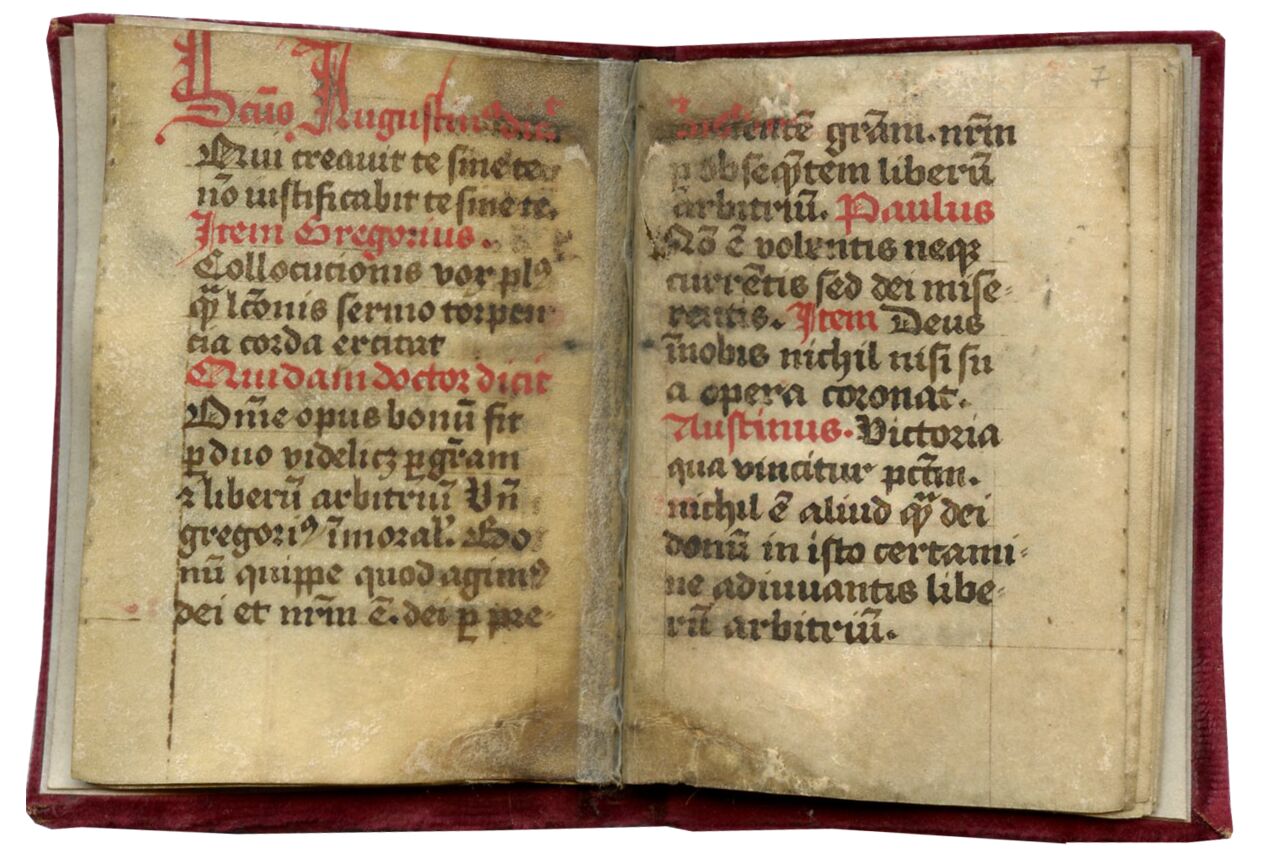 Sctūs Augustinus dicit
Qui creauit te sine te
nō iustificabit te sine te.
Item Gregorius.
Collocucionis vox plꝰ
qͣ̄ lc̄onis sermo torpen
cia corda excitat
Quidam doctor dicit
Om̄e opus bonū fit
ꝑ duo videlicꝫ ꝑ gr̄am
⁊ liberū arbitriū Vn̄
gregoriꝰ ī moral'. Bo
nū quippe quod agimꝰ
dei et nrm̄ ē. dei ꝑ pre
gr̄am. nrm̄
ꝑ obseqn̄tem liberū
arbitriū. Paulus
Nō ē volentis neqꝫ
currētis sed dei mise-
rentis. Item Deus
ī nobis nichil nisi su
a opera coronat.
Austinus. Victoria
qua vincitur pctm̄.
nichil ē aliud qͣ̄ dei
donū in isto certami-
ne adiuuantis libe-
rū arbitriū.
7